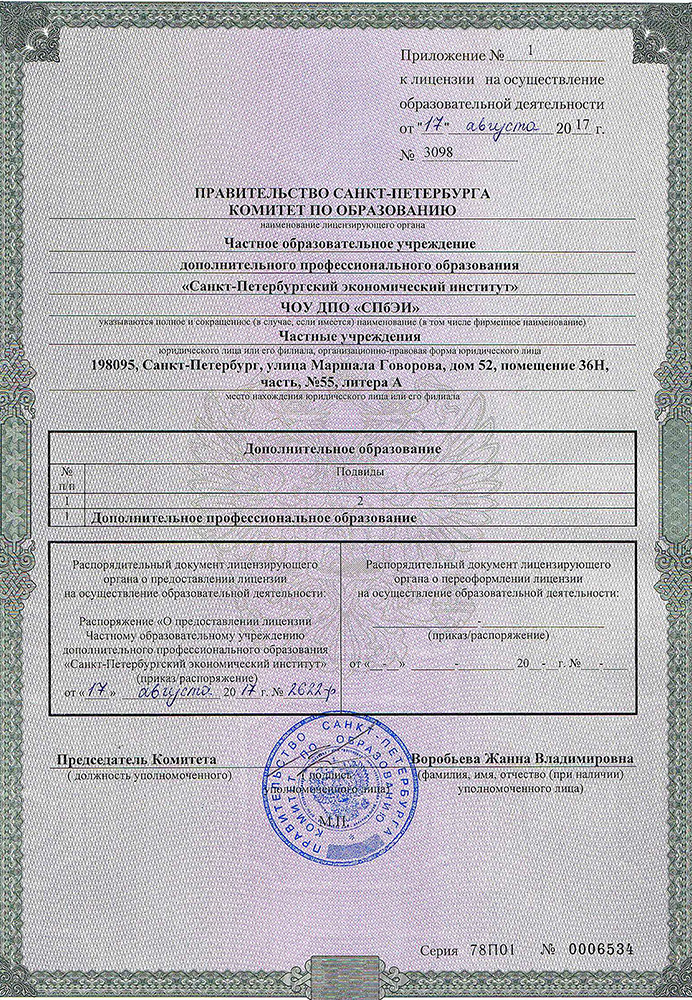 Приложение № 1
к лицензии на осуществление
образовательной деятельности
от "17" августа 2017 г.
№ 3098
ПРАВИТЕЛЬСТВО САНКТ-ПЕТЕРБУРГА
КОМИТЕТ ПО ОБРАЗОВАНИЮ
наименование лицензирующего органа
Частное образовательное учреждение
дополнительного профессионального образования
«Санкт-Петербургский экономический институт»
ЧОУ ДПО «СПбЭИ»
указываются полное и сокращенное (в случае, если имеется) наименование (в том числе фирменное наименование)
Частные учреждения
юридического лица или его филиала, организационно-правовая форма юридического лица
198095, Санкт-Петербург, улица Маршала Говорова, дом 52, помещение 36Н,
часть, №55, литера А
место нахождения юридического лица или его филиала
Дополнительное образование
№ п/п Подвиды
1 2
1 Дополнительное профессиональное образование
Распорядительный документ лицензирующего
органа о предоставлении лицензии
на осуществление образовательной деятельности:
Распоряжение «О предоставлении лицензии
Частному образовательному учреждению
дополнительного профессионального образования
«Санкт-Петербургский экономический институт»
(приказ/распоряжение)
от «17» августа 2017 г. № 2622-р
Распорядительный документ лицензирующего
органа о переоформлении лицензии
на осуществление образовательной деятельности:
-
(приказ/распоряжение)
от « - » - 20 - г. № -
Председатель Комитета
( должность уполномоченного)
( подпись
уполномоченного лица)
М.П.
Воробьева Жанна Владимировна
(фамилия, имя, отчество (при наличии)
уполномоченного лица)
ПРАВИТЕЛЬСТВО САНКТ-ПЕТЕРБУРГА
КОМИТЕТ ПО ОБРАЗОВАНИЮ
Серия 78П01 № 0006534